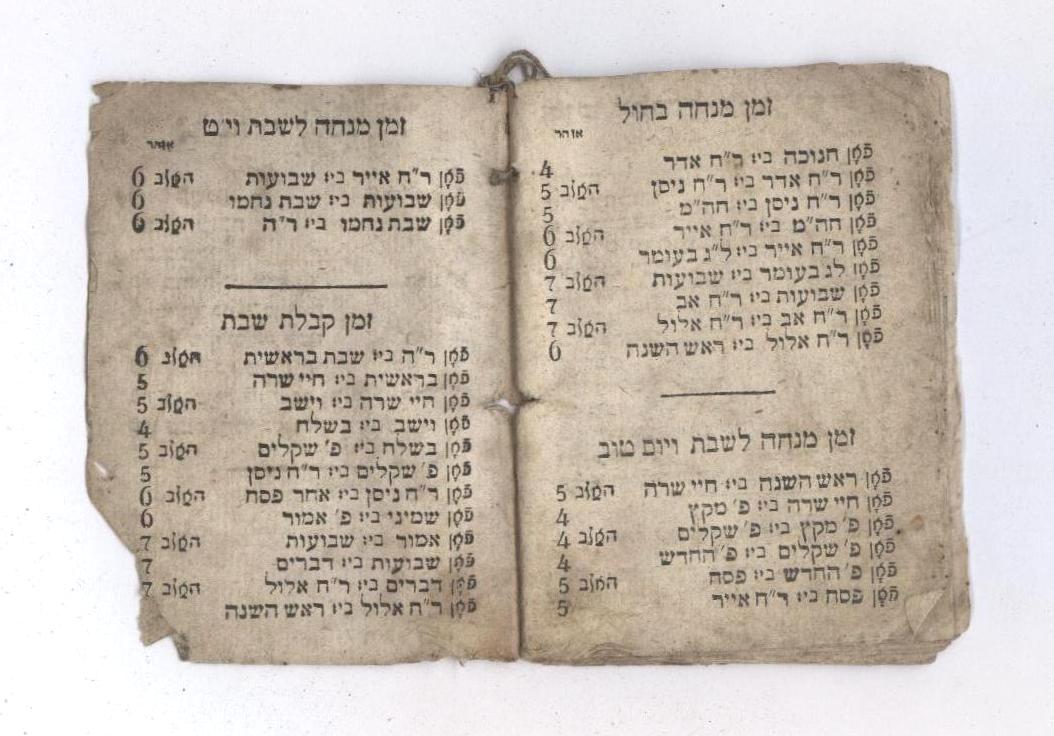 זמן מנחה בחול
אוהר
פֿאָן חנוכה ביז ר״ח אדר 4
פֿאָן ר״ח אדר ביז ר״ח ניסן האלב 5
פֿאָן ר״ח ניסן ביז חה״מ 5
פֿאָן חה״מ ביז ר״ח אייר האלב 6
פֿאָן ר״ח אייר ביז ל״ג בעומר 6
פֿאָן לג בעומר ביז שבועות האלב 7
פֿאָן שבועות ביז ר״ח אב 7
פֿאָן ר״ח אב ביז ר״ח אלול האלב 7
פֿאָן ר״ח אלול ביז ראש השנה 6
זמן מנחה לשבת ויום טוב
פֿאָן ראש השנה ביז חיי שרה האלב 5
פֿאָן חיי שרה ביז פ׳ מקץ 4
פֿאָן פ׳ מקץ ביז פ׳ שקלים האלב 4
פֿאָן פ׳ שקלים ביז פ׳ החדש 4
פֿאָן פ׳ החדש ביז פסח האלב 5
פֿאָן פסח ביז ר״ח אייר 5
זמן מנחה לשבת וי״ט
אוהר
פֿאָן ר״ח אייר ביז שבועות האלב 6
פֿאָן שבועות ביז שבת נחמו 6
פֿאָן שבת נחמו ביז ר״ה האלב 6
זמן קבלת שבת
פֿאָן ר״ה ביז שבת בראשית האלב 6
פֿאָן בראשית ביז חיי שרה 5
פֿאָן חיי שרה ביז וישב האלב 5
פֿאָן וישב ביז בשלח 4
פֿאָן בשלח ביז פ׳ שקלים האלב 5
פֿאָן פ׳ שקלים ביז ר״ח ניסן 5
פֿאָן ר״ח ניסן ביז אחר פסח האלב 6
פֿאָן שמיני ביז פ׳ אמור 6
פֿאָן אמור ביז שבועות האלב 7
פֿאָן שבועות ביז דברים 7
פֿאָן דברים ביז ר״ח אלול האלב 7
פֿאָן ר״ח אלול ביז ראש השנה